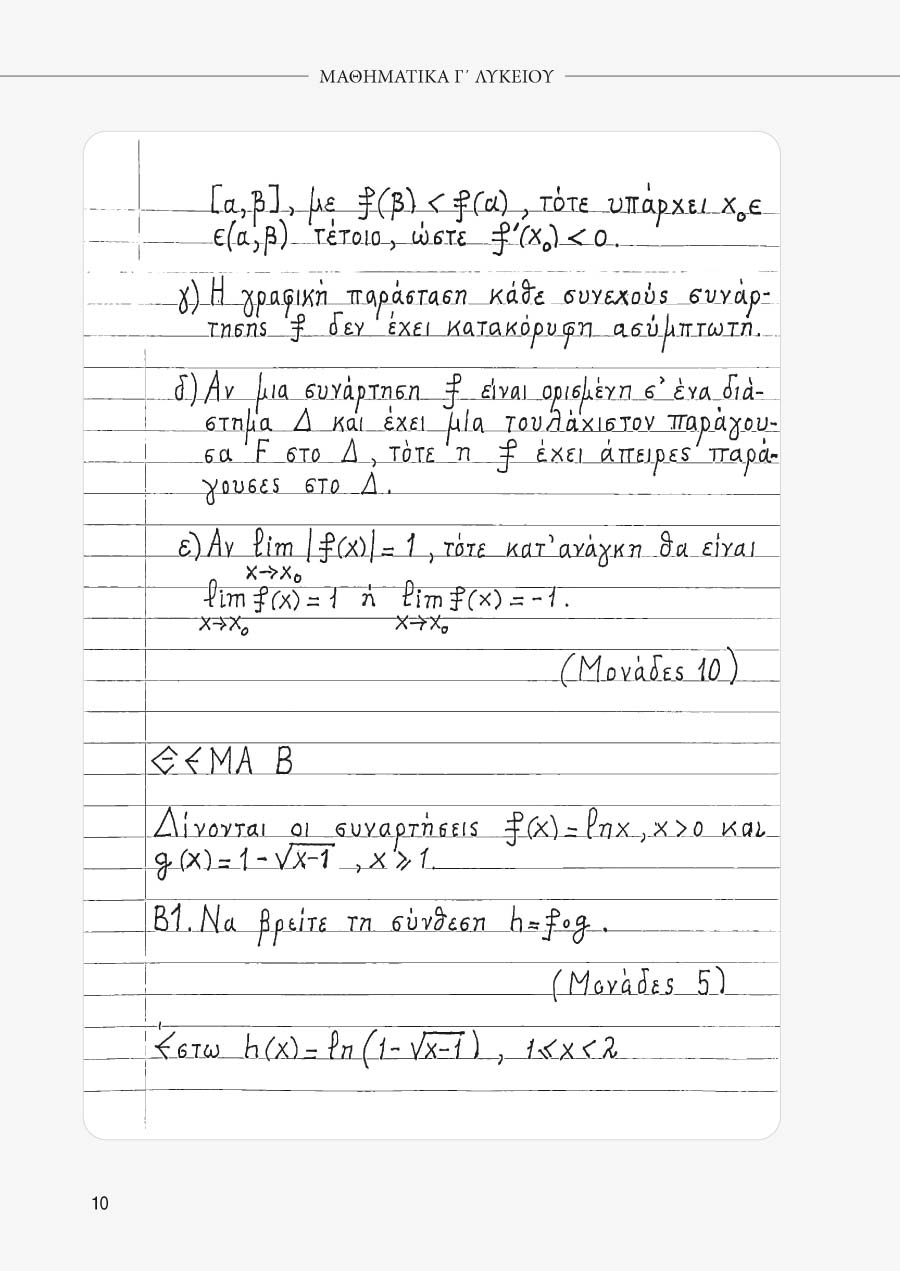 ΜΑΘΗΜΑΤΙΚΑ Γ΄ ΛΥΚΕΙΟΥ
[α,β], με f(β) < f(α), τότε υπάρχει x₀ ∈
∈(α,β) τέτοιο, ώστε f'(x₀) < 0.
γ) Η γραφική παράσταση κάθε συνεχούς συνάρ-
τησης f δεν έχει κατακόρυφη ασύμπτωτη.
δ) Αν μια συνάρτηση f είναι ορισμένη σ' ένα διά-
στημα Δ και έχει μία τουλάχιστον παράγου-
σα F στο Δ, τότε η f έχει άπειρες παρά-
γουσες στο Δ.
ε) Αν lim |f(x)| = 1, τότε κατ' ανάγκη θα είναι
x→x₀
lim f(x) = 1 ή lim f(x) = -1.
x→x₀ x→x₀
(Μονάδες 10)
ΘΕΜΑ Β
Δίνονται οι συναρτήσεις f(x) = lnx, x > 0 και
g(x) = 1 - √x-1, x ⩾ 1.
Β1. Να βρείτε τη σύνθεση h = f∘g.
(Μονάδες 5)
Έστω h(x) = ln(1 - √x-1), 1 ⩽ x < 2
10